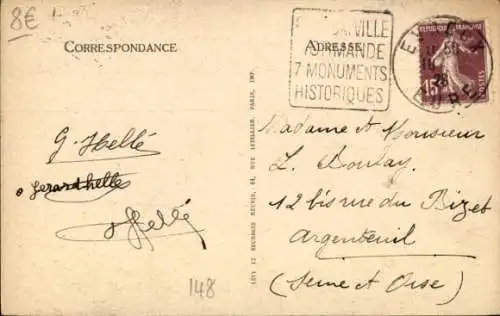 8€
CORRESPONDANCE
ADRESSE
VILLE
NORMANDE
7 MONUMENTS
HISTORIQUES
EVREUX
28
EURE
15
Madame et Monsieur
L. Boulay.
12 bis rue du Bizet
Argenteuil
(Seine et Oise)
G. Hellé
Gerard helle
Hellé
148
LÉVY ET NEURDEIN RÉUNIS, 44, RUE LETELLIER, PARIS, IMP.